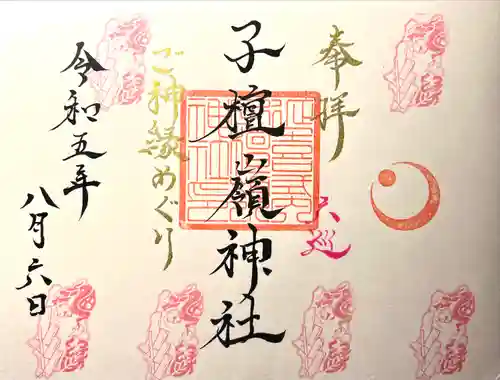 奉拝
六巡
子檀嶺神社
ご神縁めぐり
令和五年
八月六日